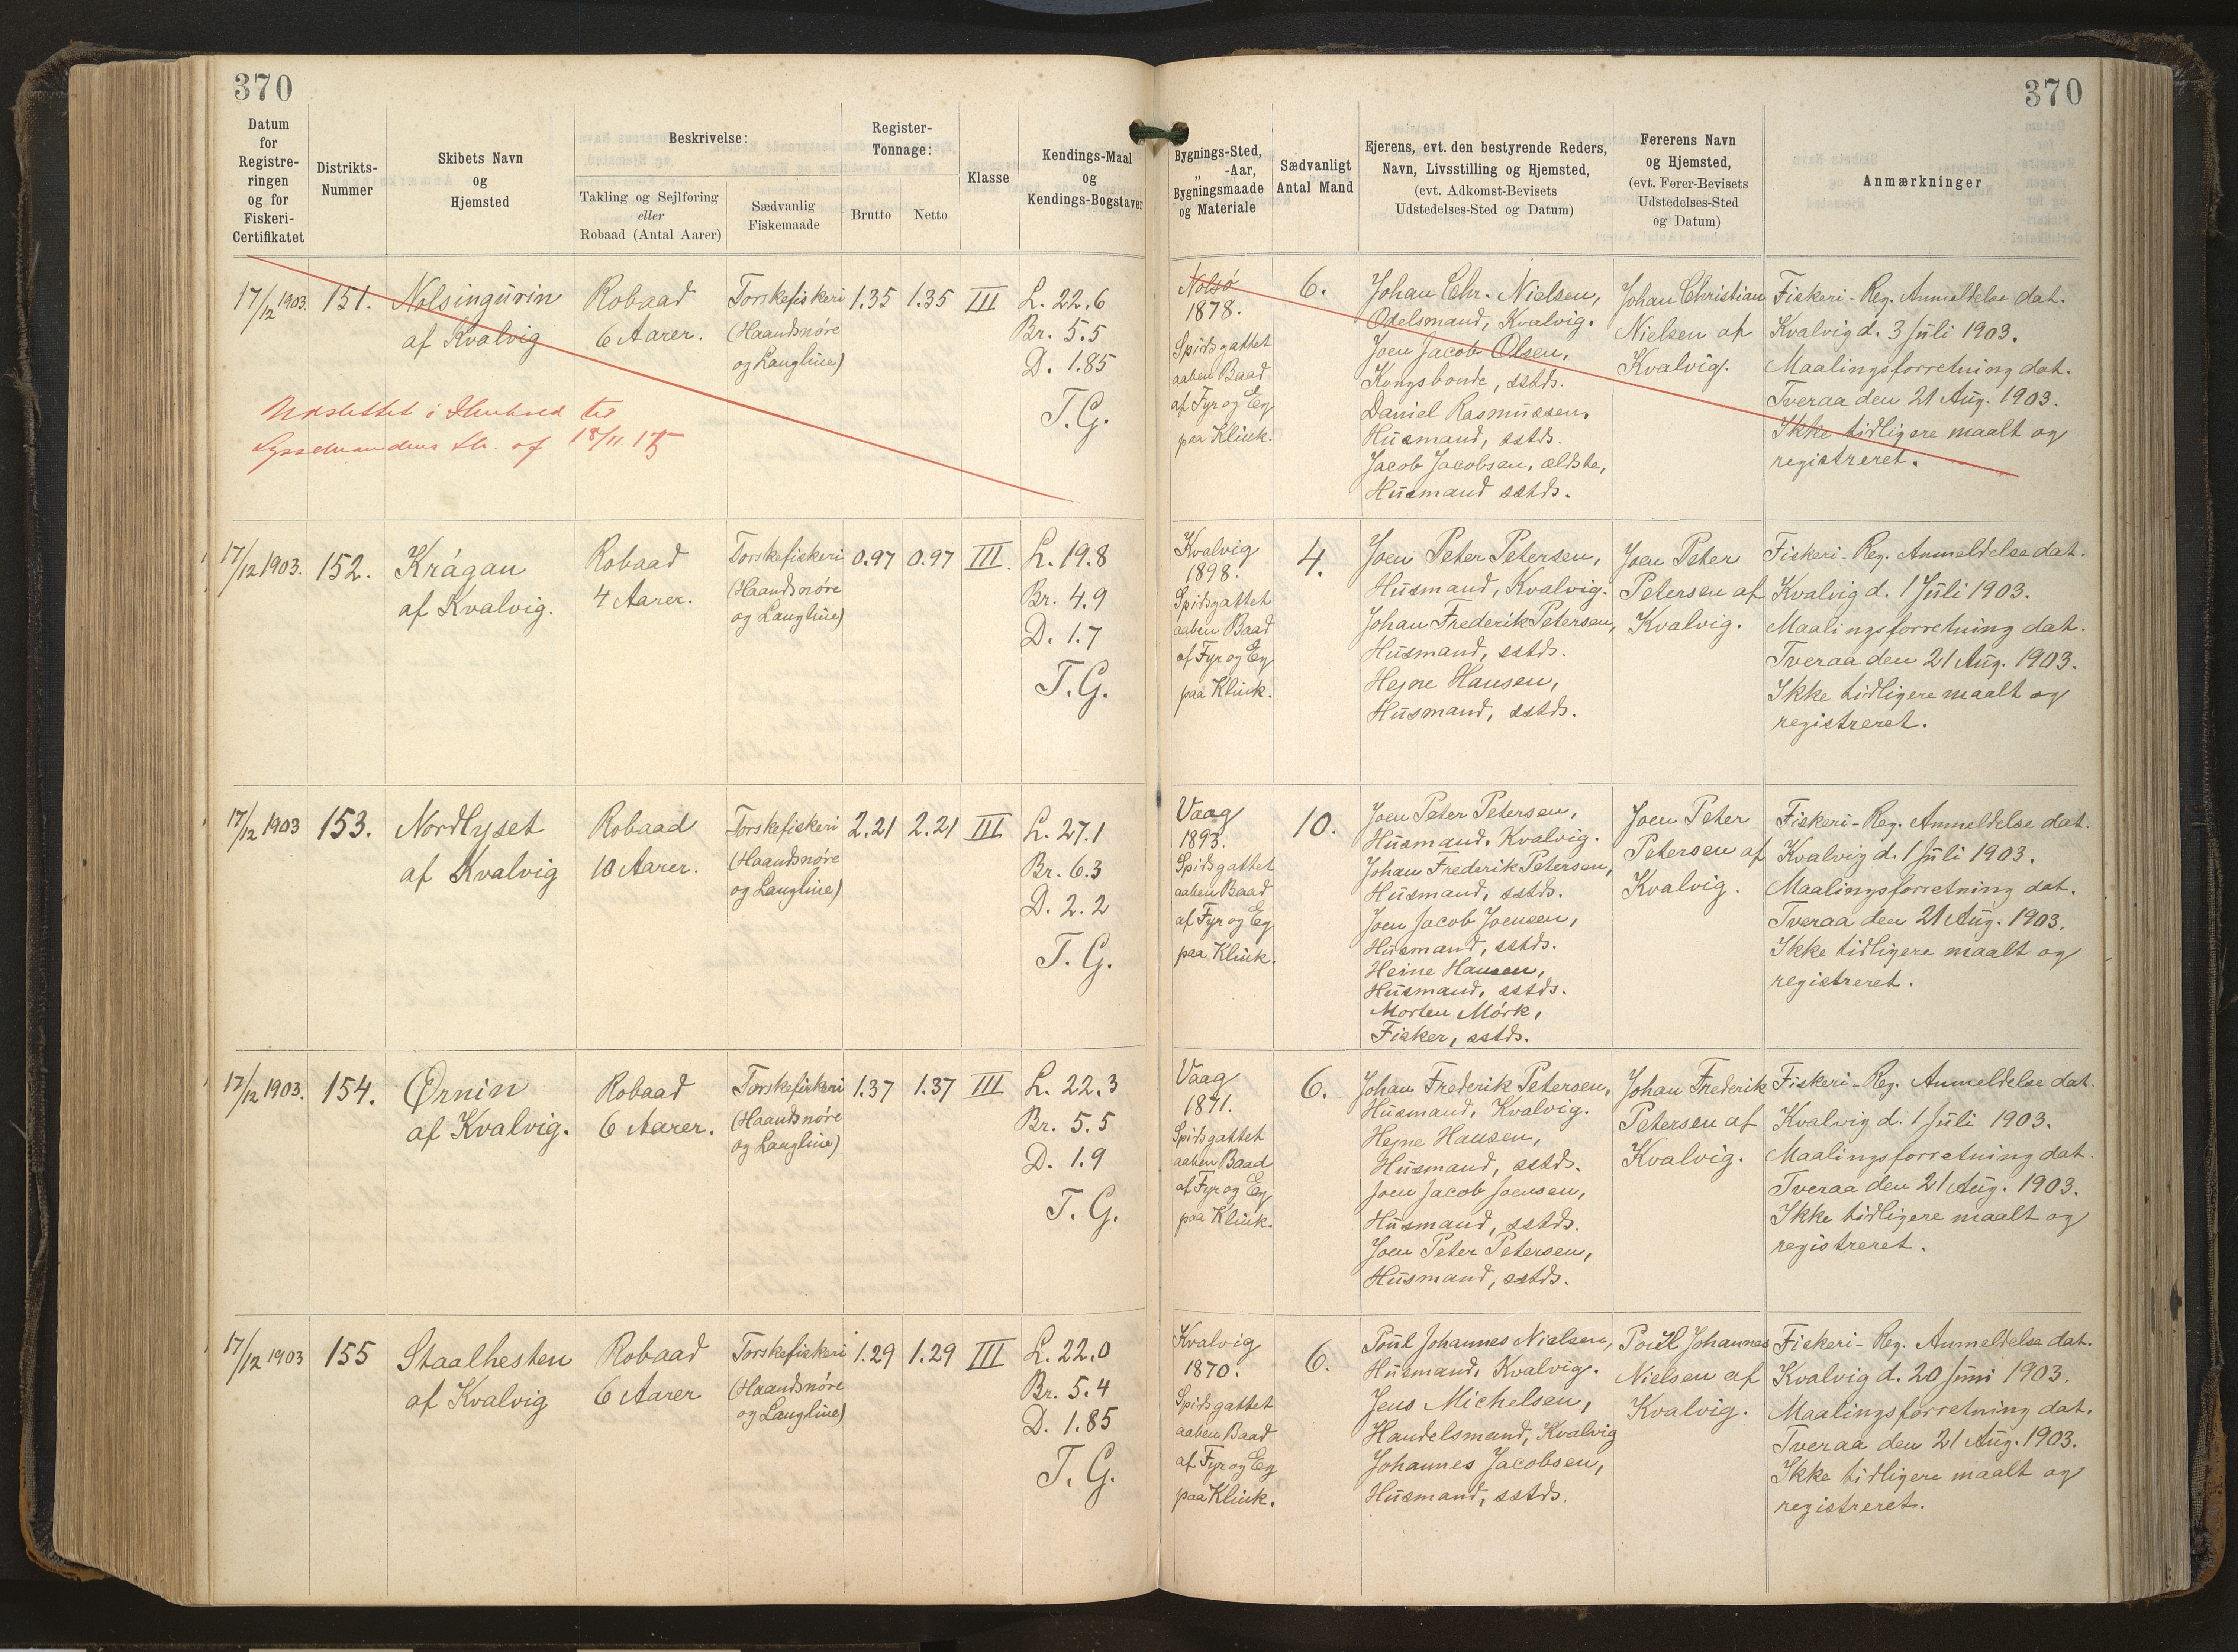 370
370
Datum
for
Registre-
ringen
og for
Fiskeri-
Certifikatet
Distrikts-
Nummer
Skibets Navn
og
Hjemsted
Beskrivelse:
Takling og Sejlføring
eller
Robaad (Antal Aarer)
Sædvanlig
Fiskemaade
Register-
Tonnage:
Brutto
Netto
Klasse
Kendings-Maal
og
Kendings-Bogstaver
Bygnings-Sted,
„ -Aar,
Bygningsmaade
og Materiale
Sædvanligt
Antal Mand
Ejerens, evt. den bestyrende Reders,
Navn, Livsstilling og Hjemsted,
(evt. Adkomst-Bevisets
Udstedelses-Sted og Datum)
Førerens Navn
og Hjemsted,
(evt. Fører-Bevisets
Udstedelses-Sted
og Datum)
Anmærkninger
17/12 1903.
151.
Nolsingurin
af Kvalvig
Robaad
6 Aarer.
Torskefiskeri
(Haandsnøre
og Langline)
1.35
1.35
III
L. 22.6
Br. 5.5
D. 1.85
T. G.
Udslettet i Henhold til
Sysselmandens Skr. af 18/11.15
Nolsø
1878.
Spidsgattet
aaben Baad
af Fyr og Eg
paa Klink.
6.
Johan Chr. Nielsen,
Odelsmand, Kvalvig.
Joen Jacob Olsen,
Kongsbonde, sstds.
Daniel Rasmussen,
Husmand, sstds.
Jacob Jacobsen, ældste,
Husmand sstds.
Johan Christian
Nielsen af
Kvalvig.
Fiskeri-Reg. Anmeldelse dat.
Kvalvig d. 3 Juli 1903.
Maalingsforretning dat.
Tveraa den 21 Aug. 1903.
Ikke tidligere maalt og
registreret.
17/12 1903.
152.
Krágan
af Kvalvig.
Robaad
4 Aarer.
Torskefiskeri
(Haandsnøre
og Langline)
0.97
0.97
III.
L. 19.8
Br. 4.9
D. 1.7
T. G.
Kvalvig
1898.
Spidsgattet
aaben Baad
af Fyr og Eg
paa Klink.
4.
Joen Peter Petersen,
Husmand, Kvalvig.
Johan Frederik Petersen,
Husmand, sstds.
Hejne Hansen,
Husmand, sstds.
Joen Peter
Petersen af
Kvalvig.
Fiskeri-Reg. Anmeldelse dat.
Kvalvig d. 1 Juli 1903.
Maalingsforretning dat.
Tveraa den 21 Aug. 1903.
Ikke tidligere maalt og
registreret.
17/12 1903
153.
Nordlyset
af Kvalvig
Robaad
10 Aarer.
Torskefiskeri
(Haandsnøre
og Langline)
2.21
2.21
III
L. 27.1
Br. 6.3
D. 2.2
T. G.
Vaag
1893.
Spidsgattet
aaben Baad
af Fyr og Eg
paa Klink.
10.
Joen Peter Petersen,
Husmand, Kvalvig.
Johan Frederik Petersen,
Husmand, sstds.
Joen Jacob Joensen,
Husmand, sstds.
Heine Hansen,
Husmand, sstds.
Morten Mórk,
Fisker, sstds.
Joen Peter
Petersen af
Kvalvig.
Fiskeri-Reg. Anmeldelse dat.
Kvalvig d. 1 Juli 1903.
Maalingsforretning dat.
Tveraa den 21 Aug. 1903.
Ikke tidligere maalt og
registreret.
17/12 1903.
154.
Ørnin
af Kvalvig.
Robaad
6 Aarer.
Torskefiskeri
(Haandsnøre
og Langline)
1.37
1.37
III
L. 22.3
Br. 5.5
D. 1.9
T. G.
Vaag
1871.
Spidsgattet
aaben Baad
af Fyr og Eg
paa Klink.
6.
Johan Frederik Petersen,
Husmand, Kvalvig.
Hejne Hansen,
Husmand, sstds.
Joen Jacob Joensen,
Husmand, sstds.
Joen Peter Petersen,
Husmand, sstds.
Johan Frederik
Petersen af
Kvalvig.
Fiskeri-Reg. Anmeldelse dat.
Kvalvig d. 1 Juli 1903.
Maalingsforretning dat.
Tveraa den 21 Aug. 1903.
Ikke tidligere maalt og
registreret.
17/12 1903
155
Staalhesten
af Kvalvig
Robaad
6 Aarer
Torskefiskeri
(Haandsnøre
og Langline)
1.29
1.29
III
L. 22.0
Br. 5.4
D. 1.85
T. G.
Kvalvig
1870.
Spidsgattet
aaben Baad
af Fyr og Eg
paa Klink.
6.
Poul Johannes Nielsen,
Husmand, Kvalvig.
Jens Michelsen,
Handelsmand, Kvalvig
Johannes Jacobsen,
Husmand, sstds.
Poul Johannes
Nielsen af
Kvalvig.
Fiskeri-Reg. Anmeldelse dat.
Kvalvig d. 20 Juni 1903.
Maalingsforretning dat.
Tveraa den 21 Aug. 1903.
Ikke tidligere maalt og
registreret.